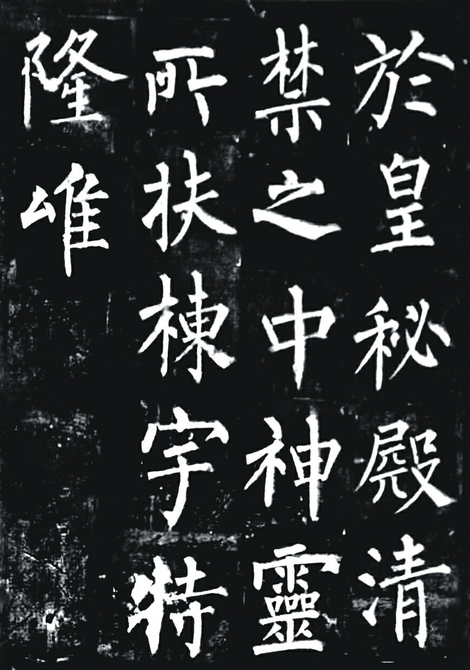 於皇秘殿清
禁之中神靈
所扶棟宇特
隆唯